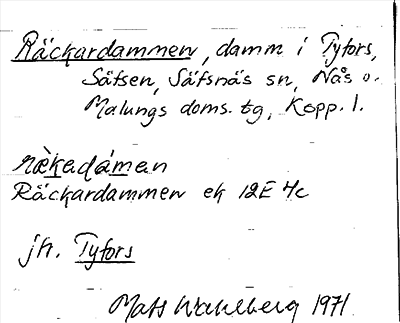 Räckardammen, damm i Tyfors,
Säfsen, Säfsnäs sn, Nås o.
Malungs doms. tg, Kopp. l.
ræ̀kadámen
Räckardammen ek 12E 4c
jfr. Tyfors
Mats Wahlberg 1971